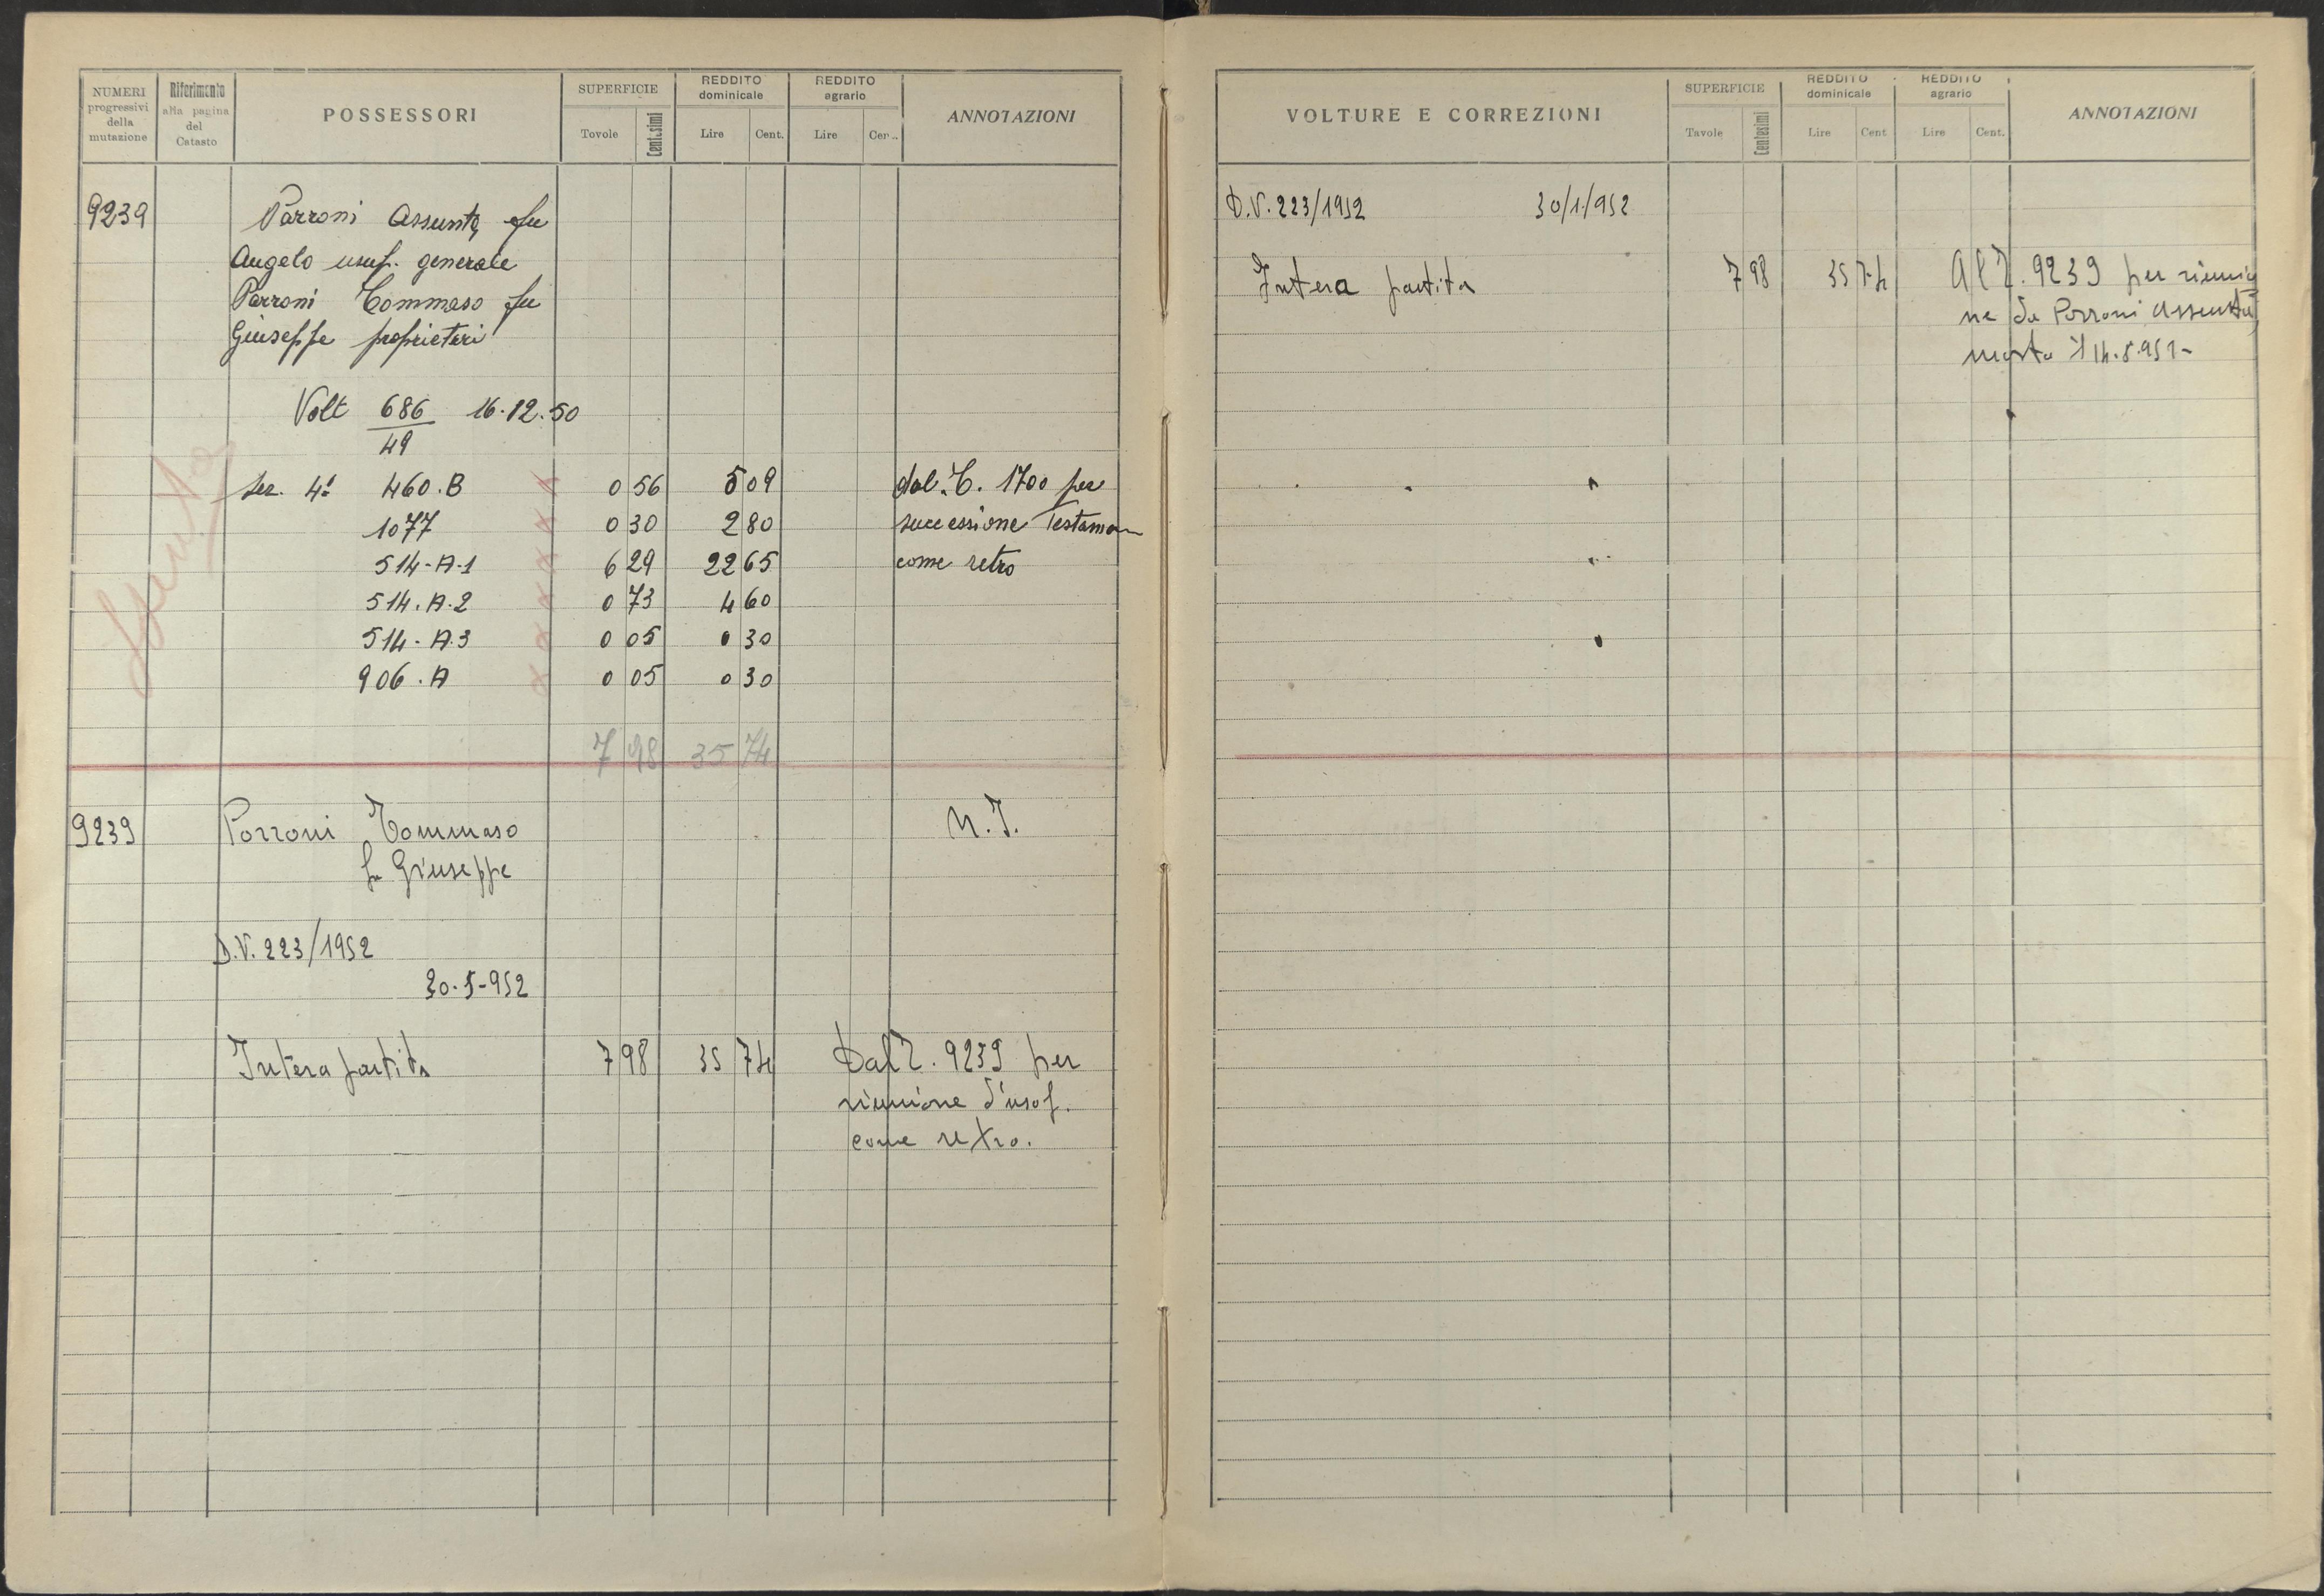 NUMERI progressivi della mutazione
Riferimento alla pagina del Catasto
POSSESSORI
SUPERFICIE
Tavole Centesimi
REDDITO dominicale
Lire Cent.
REDDITO agrario
Lire Cen..
ANNOTAZIONI
9239 Parroni Assunta fu
Angelo usuf. generale
Parroni Tommaso fu
Giuseppe proprietari
Volt 686 16.12.50
49
Sez. 4ª 460.B 0 56 5 09 dal. C. 1700 per
1077 0 30 2 80 successione Testamen
514-A-1 6 29 22 65 come retro
514.A.2 0 73 4 60
514-A.3 0 05 0 30
906.A 0 05 0 30
7 98 35 74
9239 Porroni Tommaso N.I.
fu Giuseppe
D.V. 223/1952
30-5-952
Intera partita 7 98 35 74 Dal 2. 9239 per
riunione d'usof.
come retro.
VOLTURE E CORREZIONI
SUPERFICIE
Tavole Centesimi
REDDITO dominicale
Lire Cent
REDDITO agrario
Lire Cent.
ANNOTAZIONI
D.V. 223/1952 30/1/952
Intera partita 7 98 35 74 Al 2. 9239 per riunio
ne da Porroni Assunta,
morta il 14.5.951-